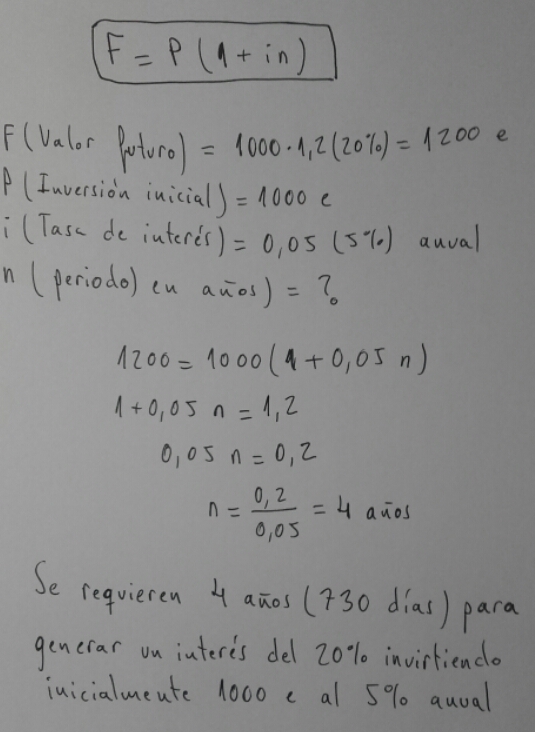 F = P (1 + in)
F (Valor futuro) = 1000 · 1,2 (20%) = 1200 e
P (Inversión inicial) = 1000 e
i (Tasa de interés) = 0,05 (5%) anual
n (periodo) en años) = ?
1200 = 1000 (1 + 0,05 n)
1 + 0,05 n = 1,2
0,05 n = 0,2
n = 0,2 / 0,05 = 4 años
Se requieren 4 años (730 días) para
generar un interés del 20% invirtiendo
inicialmente 1000 e al 5% anual